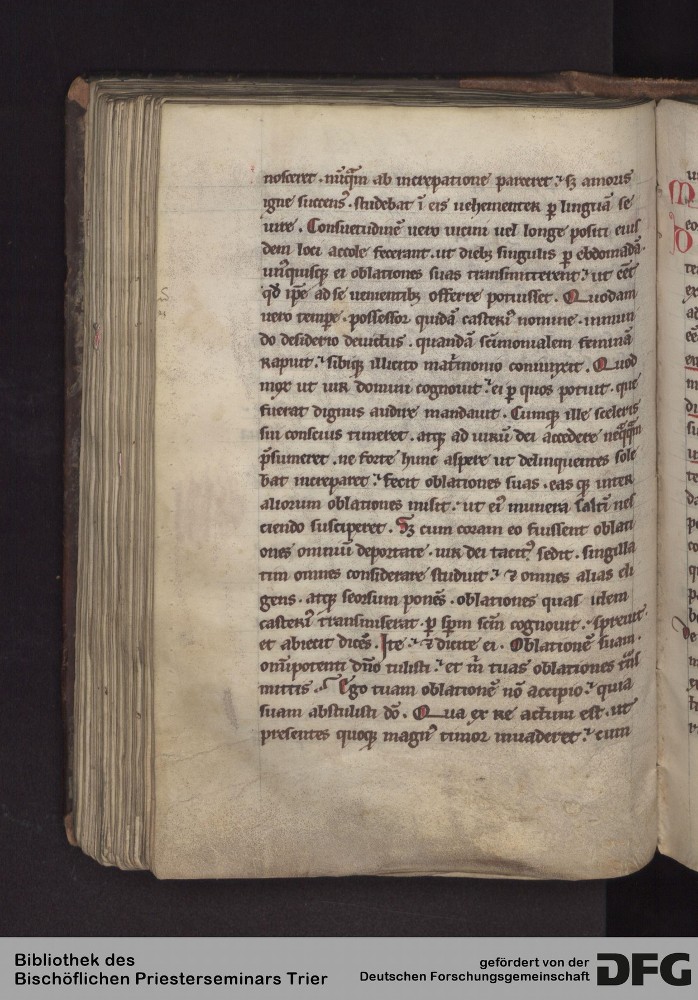 nosceret . nūq̄m ab increpatione parceret ⁊ sʒ amoris
igne succensꝰ . studebat ī eis uehementer ꝑ linguā se
uire . Consuetudinē uero uicini uel longe positi eius
dem loci accole fecerant . ut diebꝫ singulis ꝑ ebdomadā .
un̄quisqꝫ ei oblationes suas transmitterent . ut eēt
qd̄ ip̄e ad se uenientibꝫ offerre potuisset . Quodam
uero tempe . possessor quidā casteriꝰ nomine . inmun
do desiderio deuictus . quandā sc̄imonialem feminā
rapuit . sibiqꝫ illicito mat̄monio coniunxit . Quod
mox ut uir domini cognouit . ei ꝑ quos potuit . que
fuerat dignus audire mandauit . Cumqꝫ ille sceleris
sui conscius timeret . atqꝫ ad uirū dei accedere neq̄q̄m
p̄sumeret . ne forte hunc aspere ut delinquentes sole
bat increparet . fecit oblationes suas . eas qꝫ inter
aliorum oblationes misit . ut eiꝰ munera saltī nes
ciendo susciperet . Sʒ cum coram eo fuissent oblati
ones omniū deportate . uir dei tacitꝰ sedit . singilla
tim omnes considerare studuit . ⁊ omnes alias eli
gens . atqꝫ seorsum ponēs . oblationes quas idem
casteriꝰ transmiserat . ꝑ sp̄m sc̄m cognouit . spreuit .
et abiecit dicēs . Ite . ⁊ dicite ei . Oblationē suam .
om̄ipotenti dn̄o tulisti . et m̄ tuas oblationes tn̄s
mittis . Ego tuam oblationē nō accipio . quia
suam abstulisti dō . Qua ex re actum est . ut
presentes quoqꝫ magnꝰ timor inuaderet . cum
Bibliothek des
Bischöflichen Priesterseminars Trier
gefördert von der
Deutschen Forschungsgemeinschaft
DFG